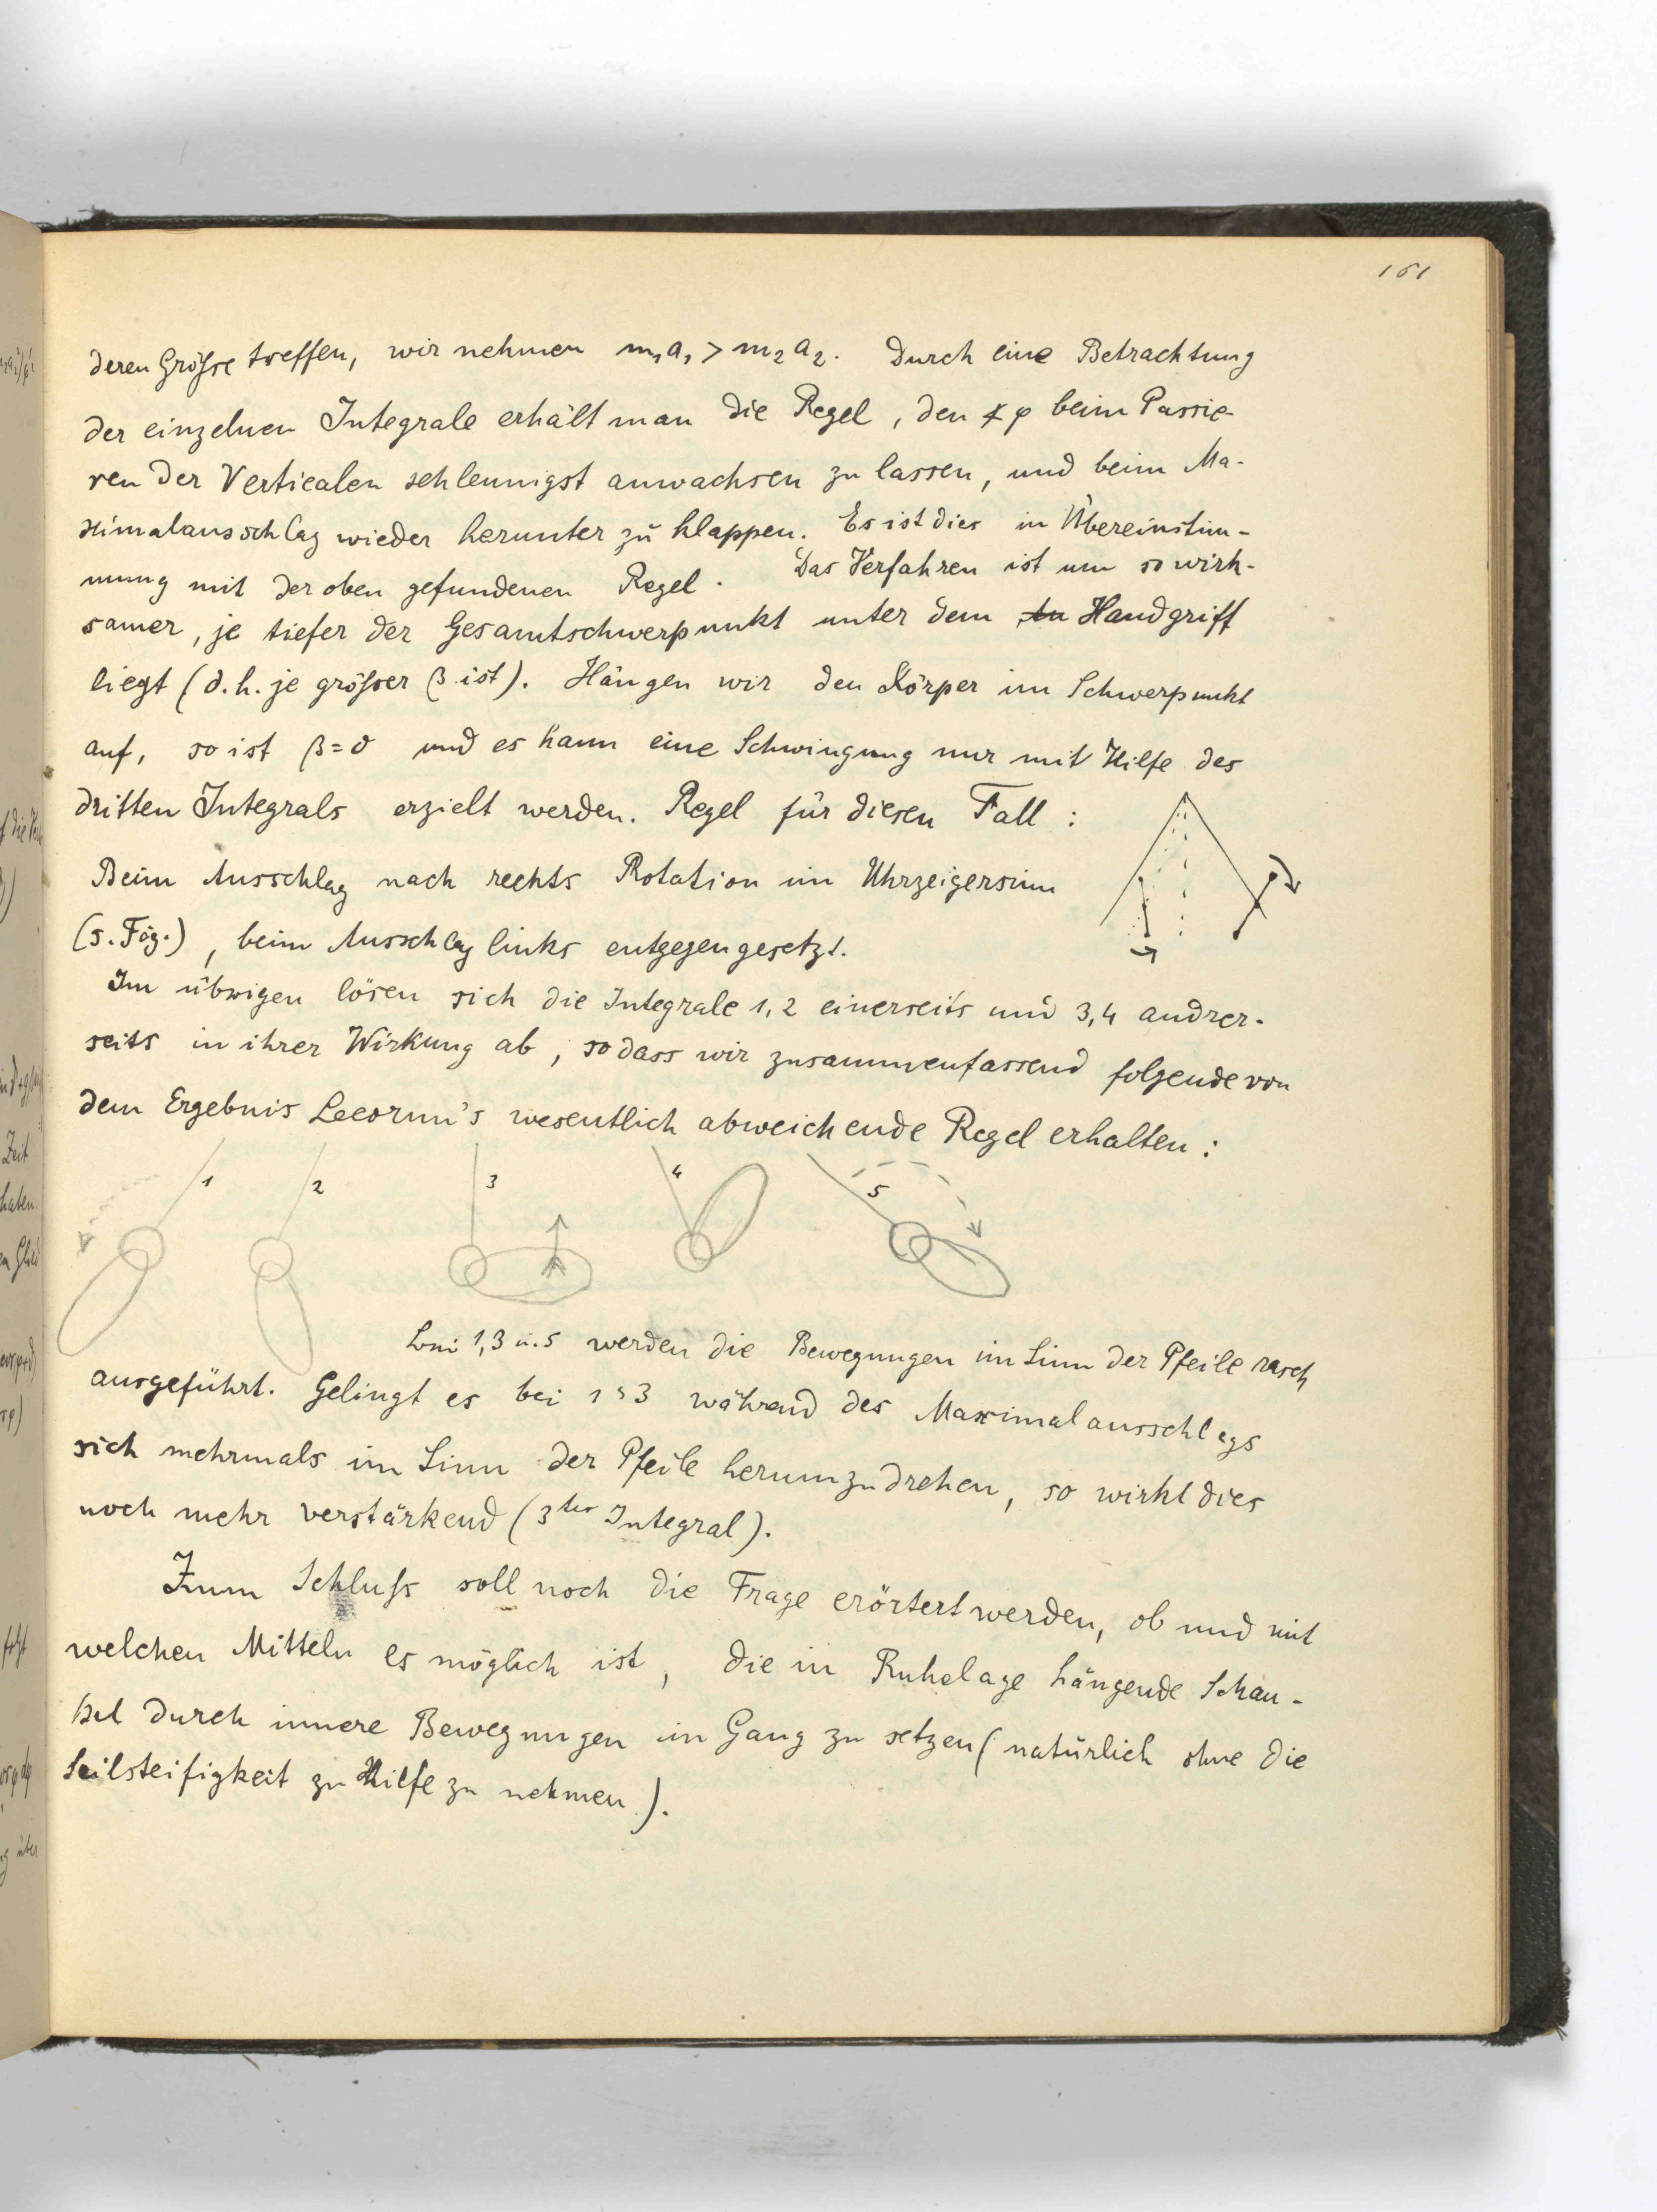 161
deren Größe treffen, wir nehmen m₁a₁ > m₂a₂. Durch eine Betrachtung
der einzelnen Integrale erhält man die Regel, den ∢φ beim Passie-
ren der Verticalen schleunigst anwachsen zu lassen, und beim Ma-
ximalausschlag wieder herunter zu klappen. Es ist dies in Übereinstim-
mung mit der oben gefundenen Regel. Das Verfahren ist um so wirk-
samer, je tiefer der Gesamtschwerpunkt unter dem Handgriff
liegt (d.h. je größer β ist). Hängen wir den Körper im Schwerpunkt
auf, so ist β=0 und es kann eine Schwingung nur mit Hilfe des
dritten Integrals erzielt werden. Regel für diesen Fall:
Beim Ausschlag nach rechts Rotation im Uhrzeigersinn
(s. Fig.), beim Ausschlag links entgegengesetzt.
Im übrigen lösen sich die Integrale 1,2 einerseits und 3,4 andrer-
seits in ihrer Wirkung ab, so dass wir zusammenfassend folgende von
dem Ergebnis Lecornu's wesentlich abweichende Regel erhalten:
1 2 3 4 5
1,3 u. 5 werden die Bewegungen im Sinn der Pfeile rasch
ausgeführt. Gelingt es bei 1 3 während des Maximalausschlags
sich mehrmals im Sinn der Pfeile herumzudrehen, so wirkt dies
noch mehr verstärkend (3tes Integral).
Zum Schluß soll noch die Frage erörtert werden, ob und mit
welchen Mitteln es möglich ist, die in Ruhelage hängende Schau-
kel durch innere Bewegungen in Gang zu setzen (natürlich ohne die
Seilsteifigkeit zu Hilfe zu nehmen).